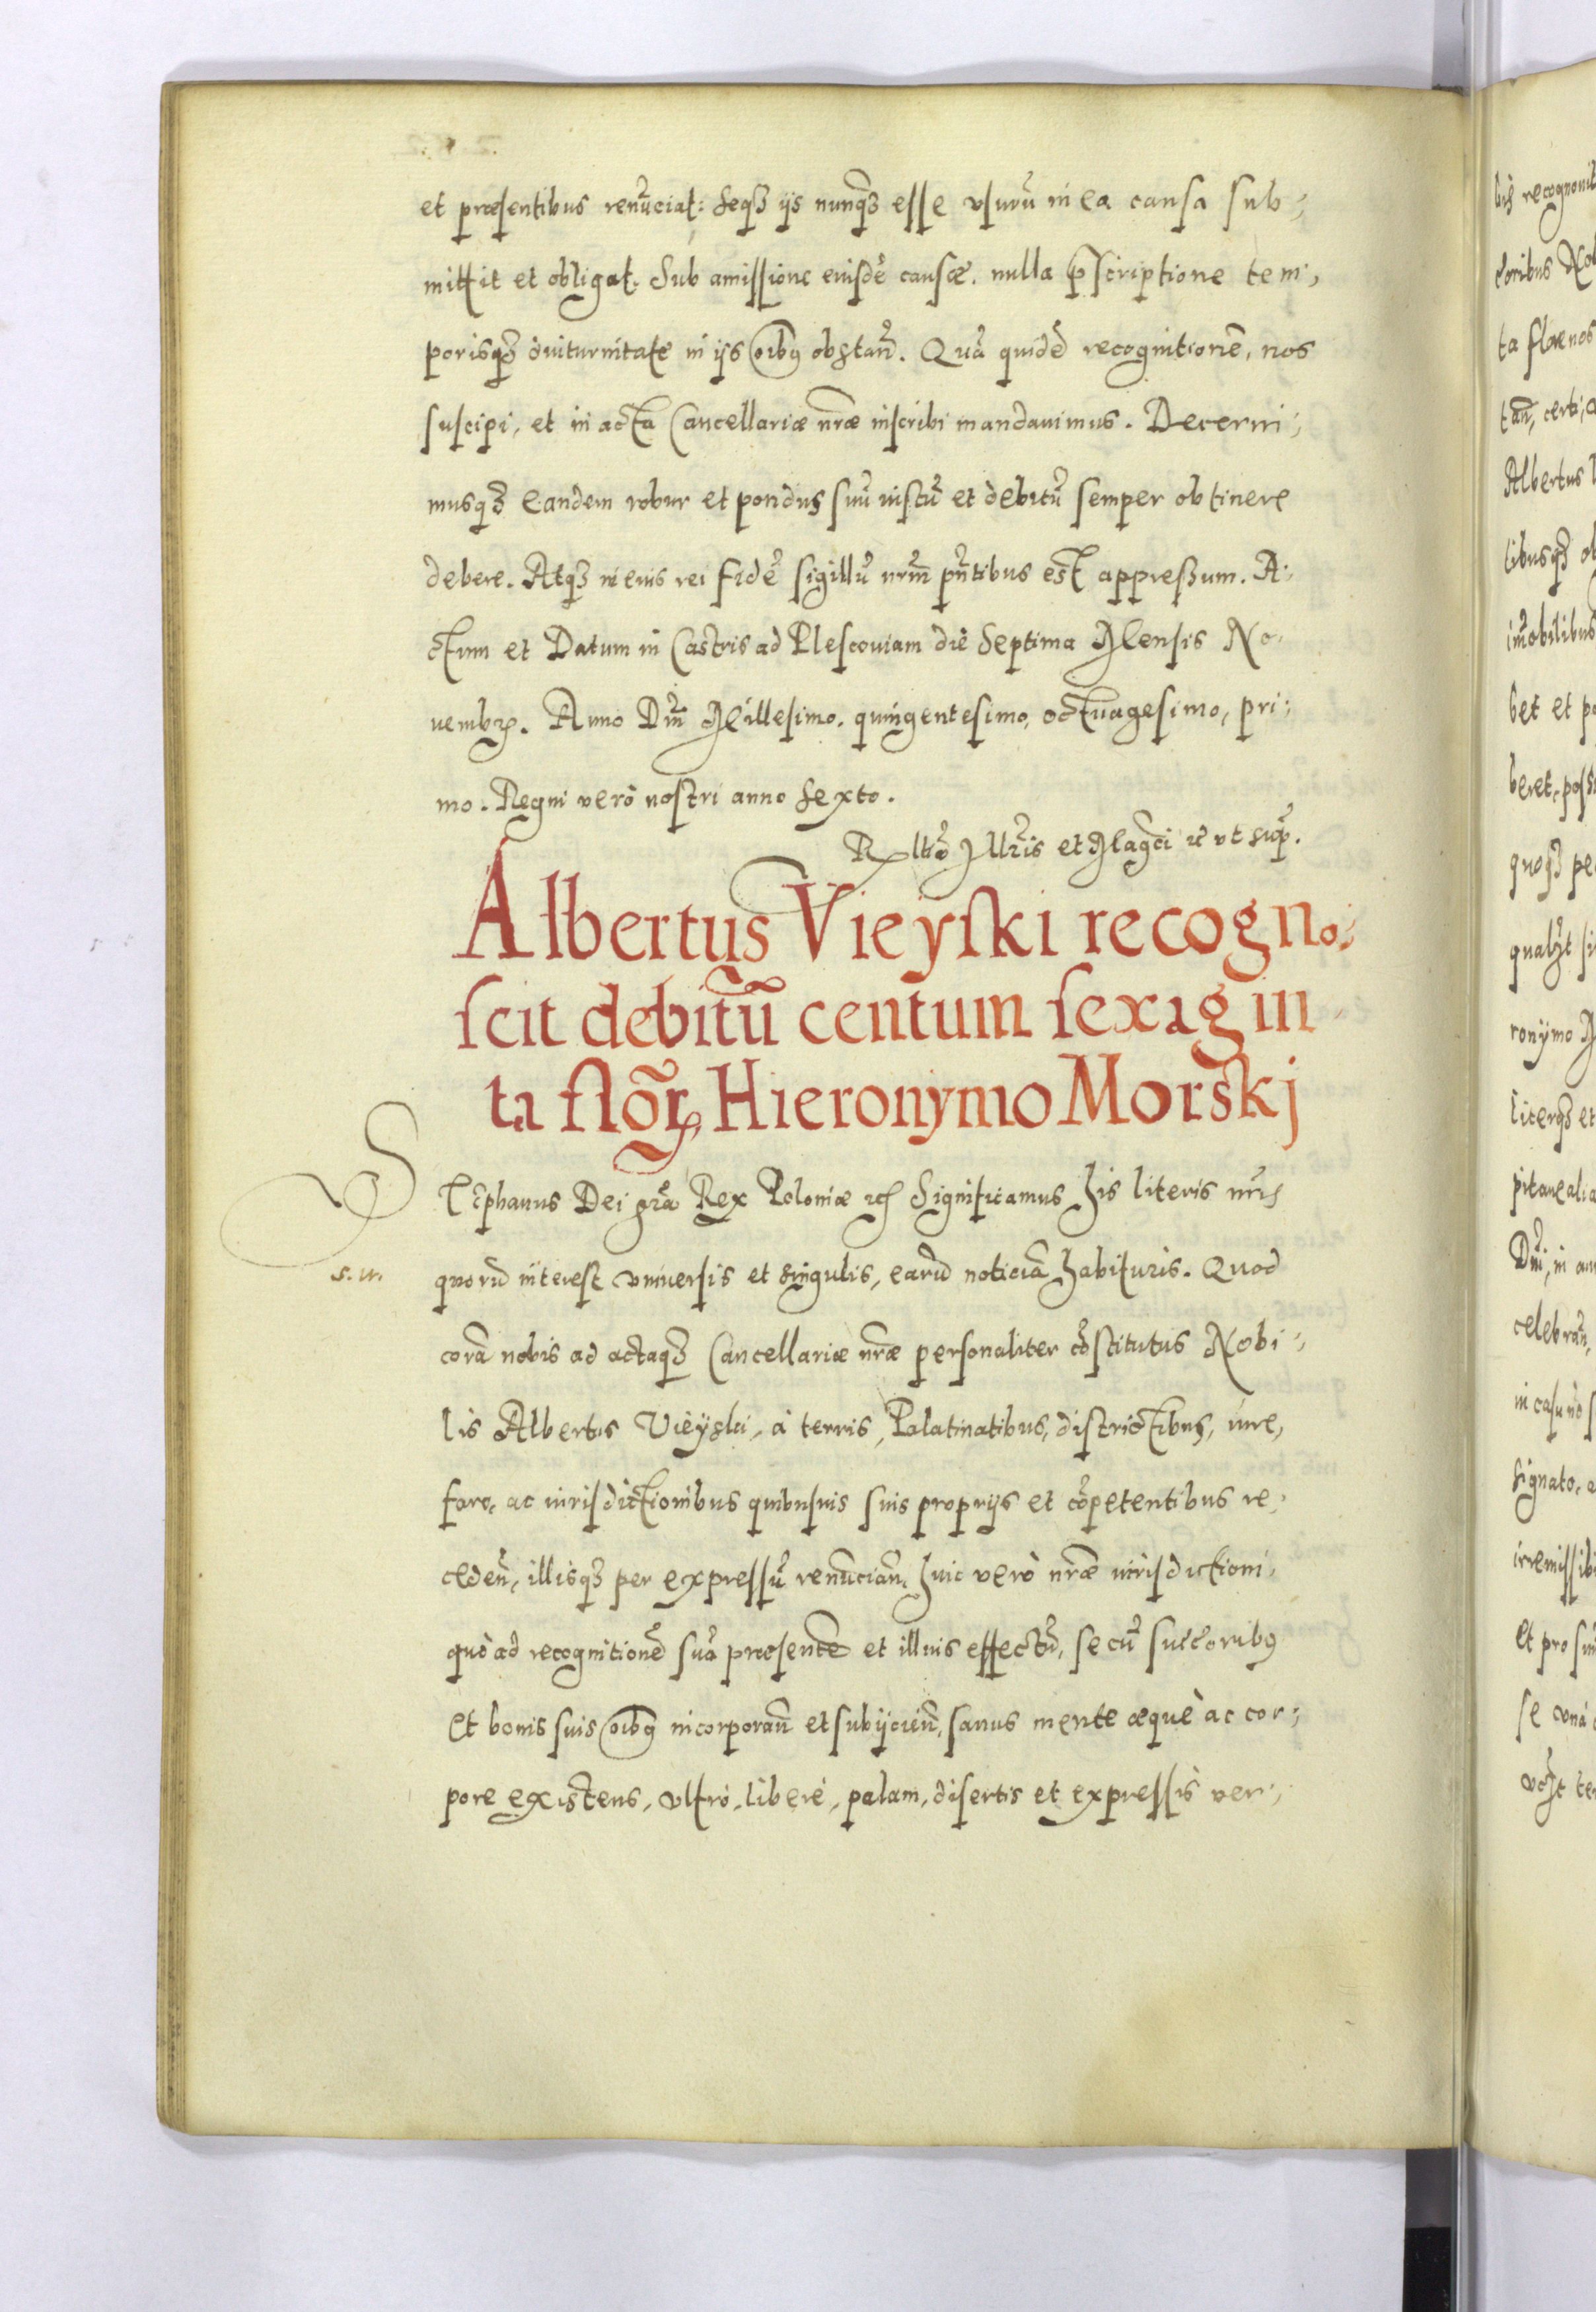 et præsentibus renũciat: seq₃ ijs nunq̃₃ esse vsurũ in ea causa sub-
mittit et obligat. Sub amissione eiusdẽ causæ. nulla p̱scriptione tem,
porisq₃ diuturnitate in ijs oĩbꝰ obstañ. Quã quidẽ recognitionẽ, nos
suscipi, et in acta Cancellariæ nr̃æ inscribi mandauimus. Decerni-
musq₃ eandem robur et pondus suũ iustũ et debitũ semper obtinere
debere. Atq₃ in eius rei fidẽ sigillũ nr̃m pñtibus est appressum. A-
ctum et Datum in Castris ad Plescouiam die Septima Mensis No-
uembꝝ. Anno Dñi Millesimo. quingentesimo, octuagesimo, pri-
mo. Regni verò nostri anno sexto.
Rltĩo Illr̃is et Magcĩ rc̃ vt sup̃.
Albertus Vieyski recogno-
scit debitũ centum sexagin-
ta flõꝝ, Hieronymo Morskj
Stephanus Dei grã Rex Poloniæ rc̃ Significamus his literis nr̃is
s. w.
quorũ interest vniuersis et singulis, earũ noticiã habituris. Quod
corã nobis ad actaq₃ Cancellariæ nr̃æ personaliter cõstitutus Nobi-
lis Albertus Vieÿski, à terris, Palatinatibus, districtibus, iure,
foro, ac iurisdictionibus quibusuis suis proprijs et cõpetentibus re-
cedeñ, illisq₃ per expressũ renũciañ, huic verò nr̃æ iurisdictioni
quò ad recognitionẽ suã præsentẽ et illius effectũ, se cũ succ̃oribꝰ
et bonis suis oĩbꝰ incorporañ et subijcieñ, sanus mente æquè ac cor-
pore existens, vltrò, liberè, palam, disertis et expressis ver-
bis recognouit
Albertus
libusq₃
bet et
beret, poss
quoq₃ pe
ronymo M
celebrañ,
in casu
signato, a
et pro
se vnà